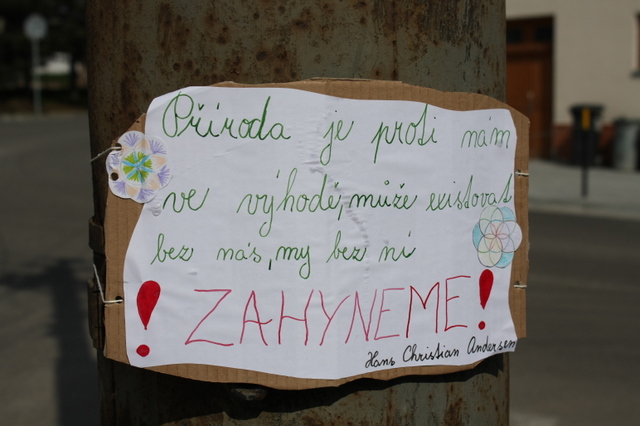 Příroda je proti nám
ve výhodě, může existovat
bez nás, my bez ní
! ZAHYNEME!
Hans Christian Andersen